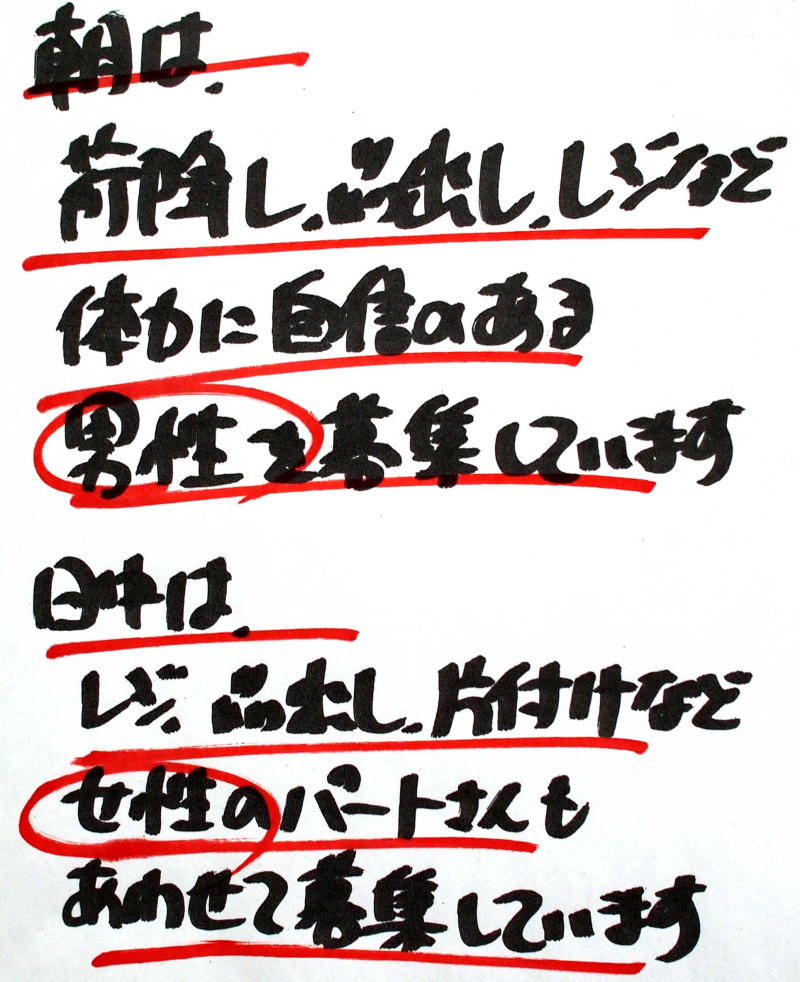 朝は、
荷降し、品出し、レジなど
体力に自信のある
男性を募集しています
日中は、
レジ、品出し、片付けなど
女性のパートさんも
あわせて募集しています